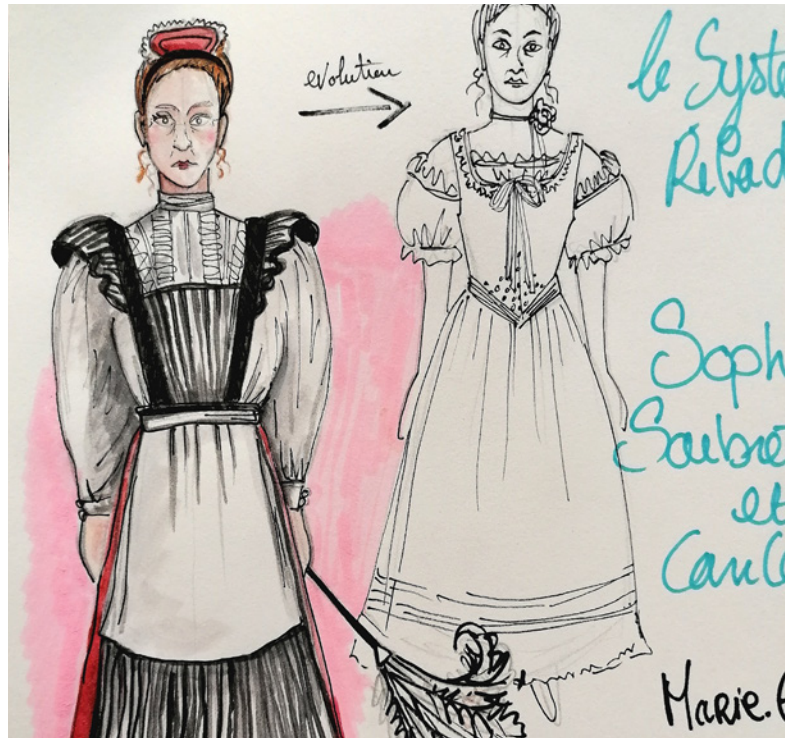 evolution
le Systè
Ribad
Soph
Soubre
et
CanC
Marie.